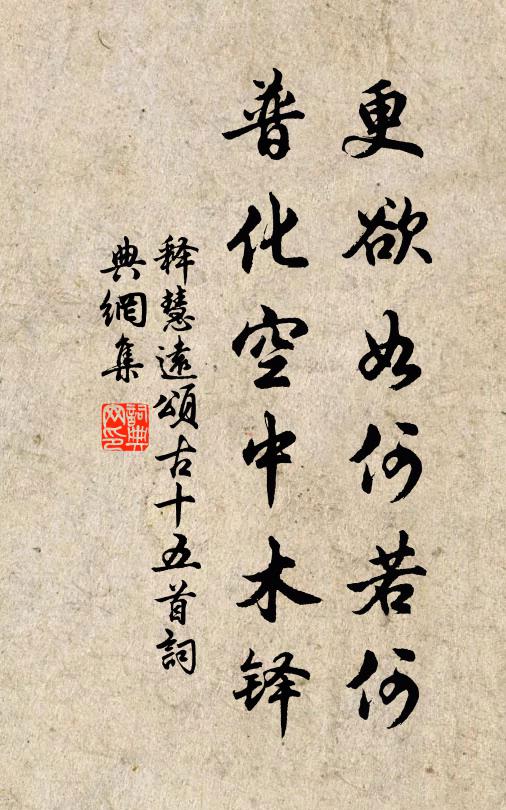 更欲如何若何
普化空中木铎
释慧遠頌古十五首詞
典網集
詞典
网印